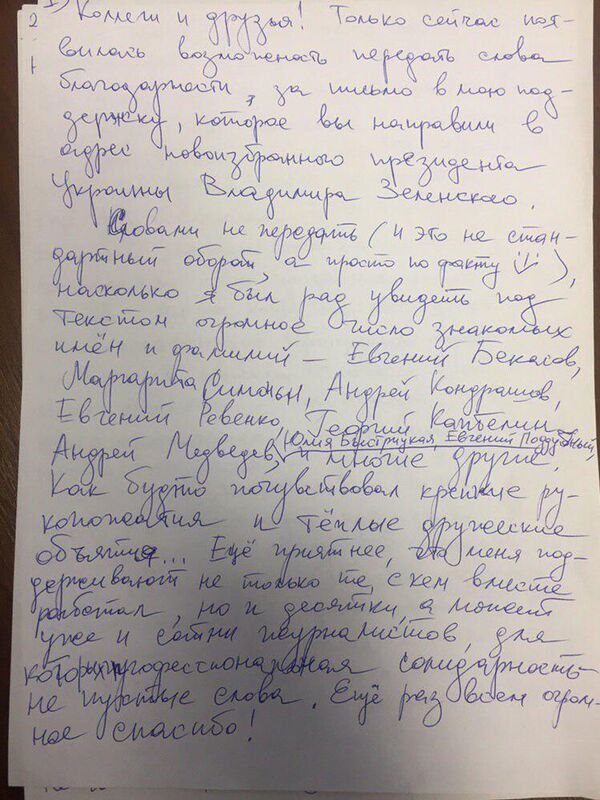 1) Коллеги и друзья! Только сейчас поя-
вилась возможность передать слова
благодарности, за письмо в мою под-
держку, которое вы направили в
адрес новоизбранного президента
Украины Владимира Зеленского.
Словами не передать (и это не стан-
дартный оборот, а просто по факту), 
насколько я был рад увидеть под
текстом огромное число знакомых
имён и фамилий – Евгений Бекасов,
Маргарита Симоньян, Андрей Кондрашов,
Евгений Ревенко, Георгий Капбелин
Юлия Быстрицкая, Евгений Поддубный,
Андрей Медведев, и многие другие.
Как будто почувствовал крепкие ру-
копожатия и тёплые дружеские
объятия... Ещё приятнее, что меня под-
держивают не только те, с кем вместе
работал, но и десятки, а может
уже и сотни журналистов, для
которых профессиональная солидарность
не пустые слова. Ещё раз всем огром-
ное спасибо!